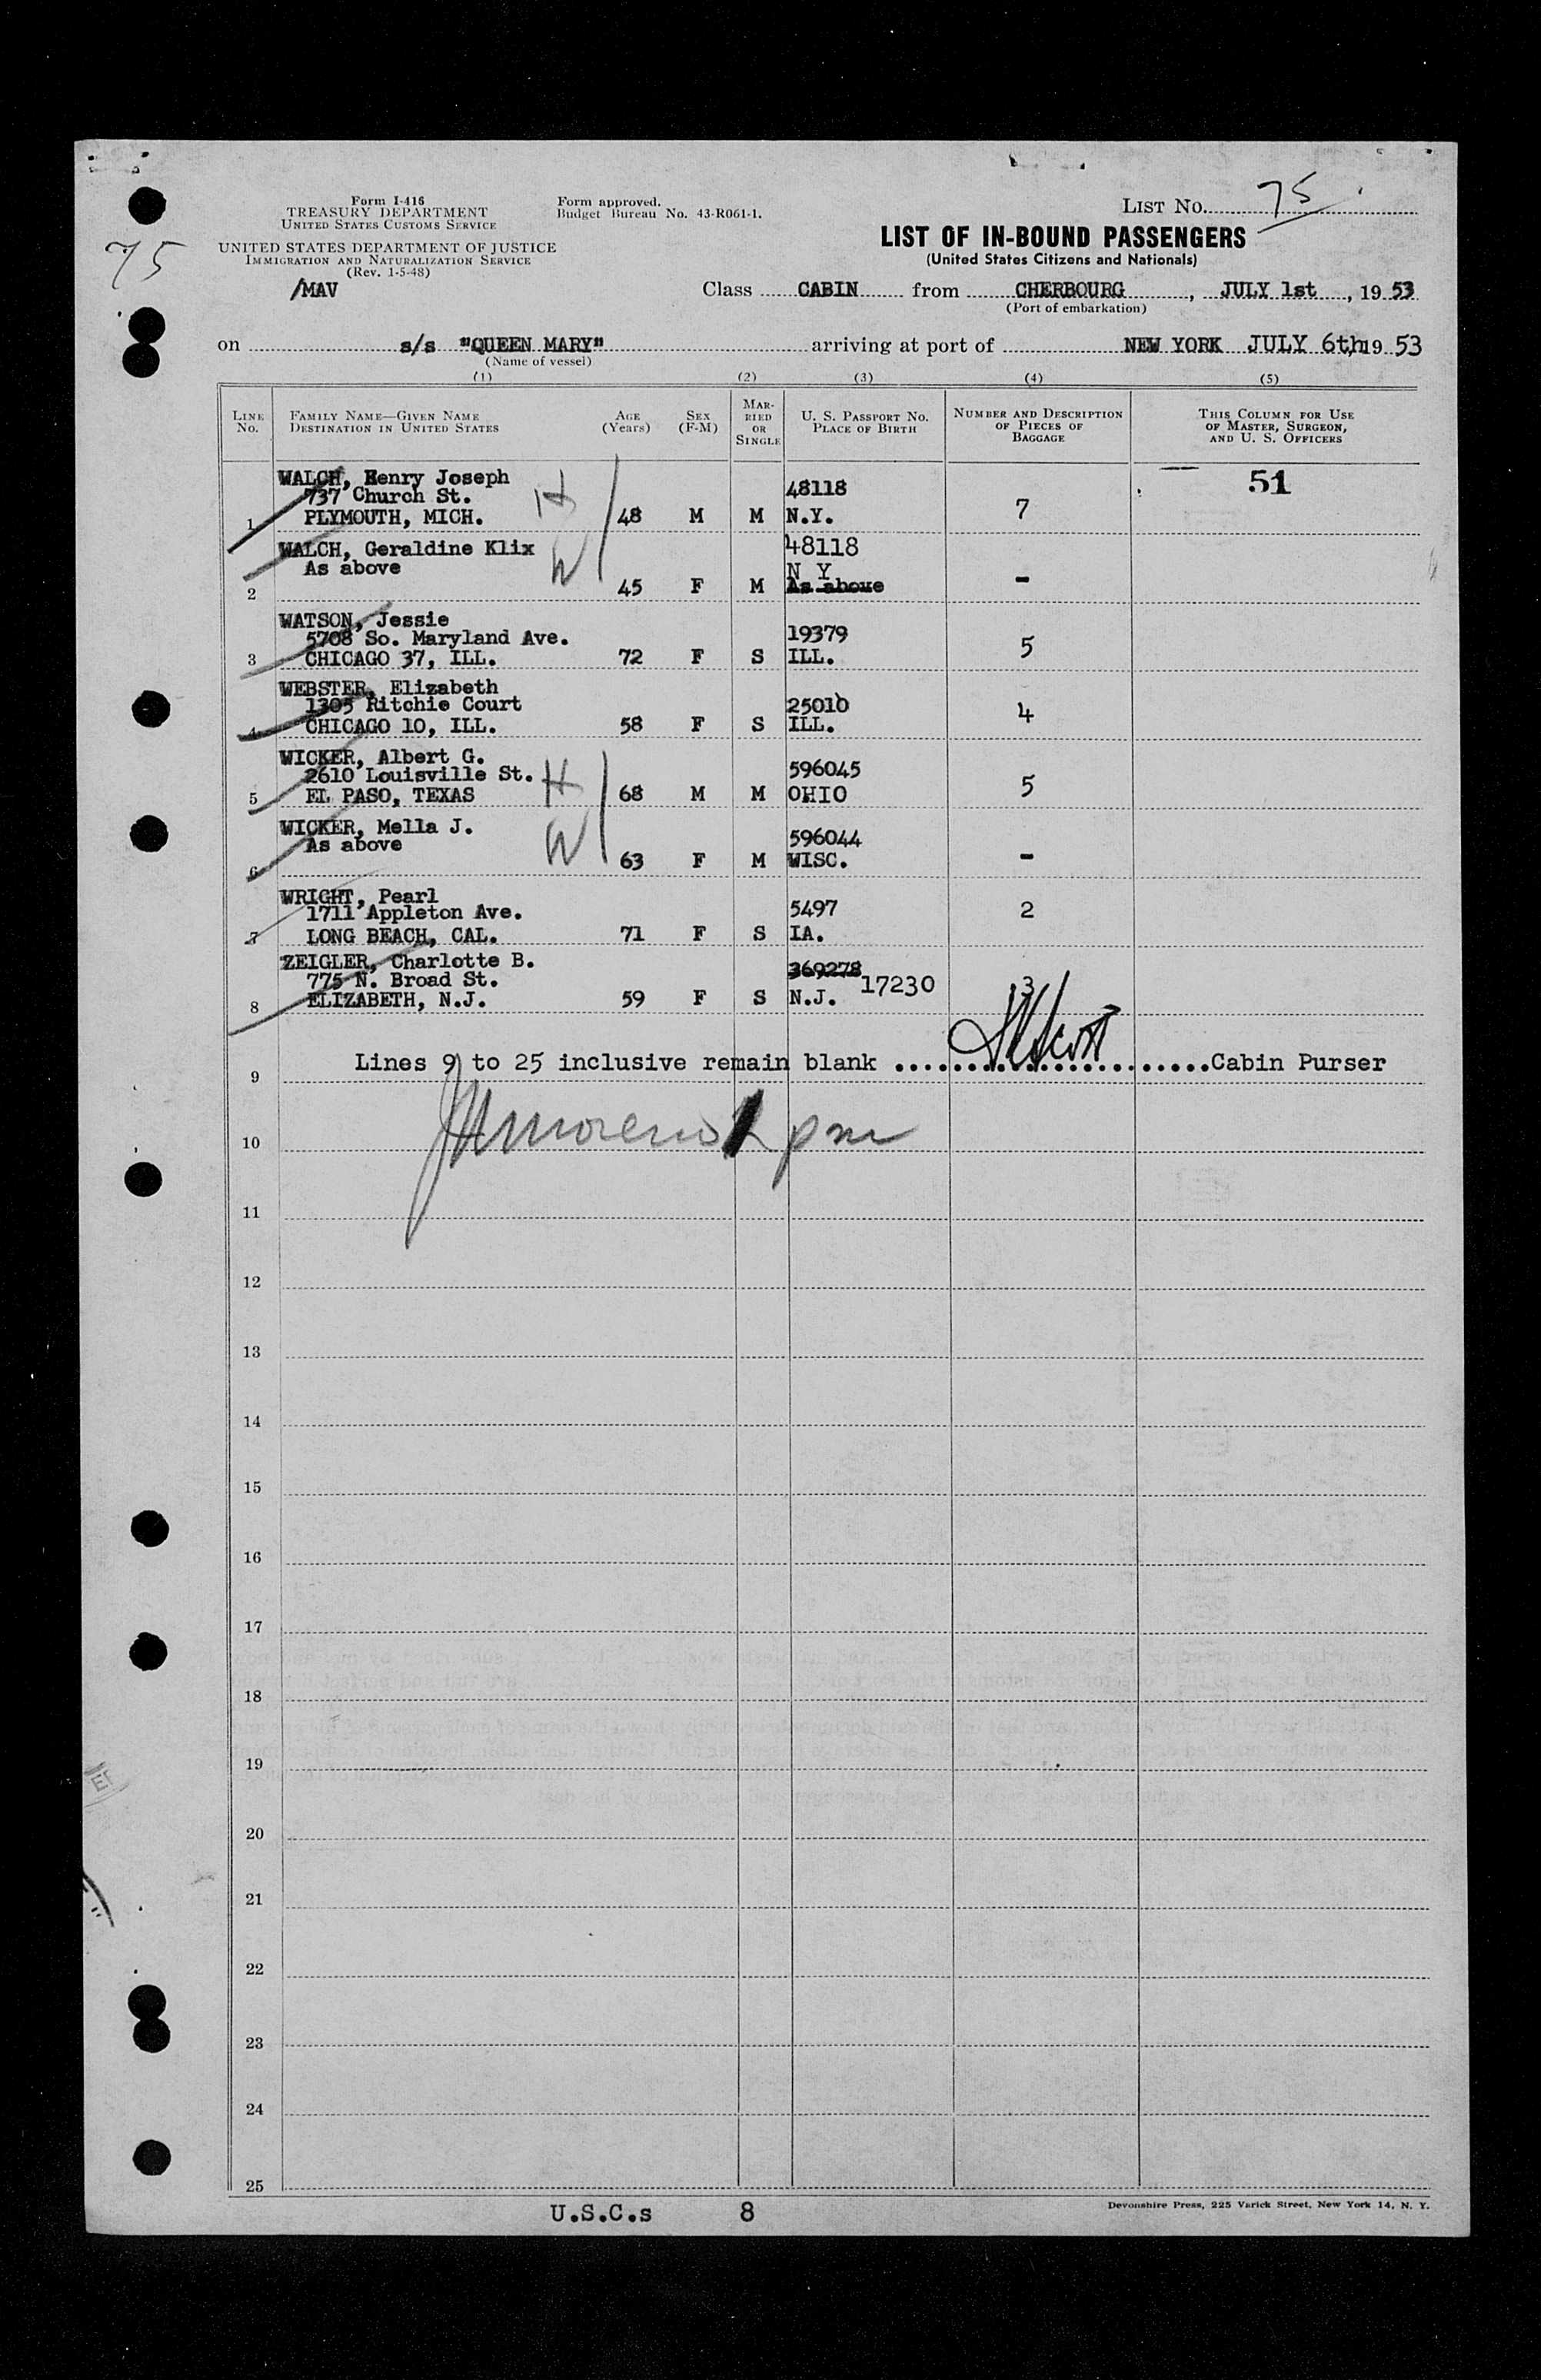 75
Form I-416
TREASURY DEPARTMENT
UNITED STATES CUSTOMS SERVICE
UNITED STATES DEPARTMENT OF JUSTICE
IMMIGRATION AND NATURALIZATION SERVICE
(Rev. 1-5-48)
/MAV
Form approved.
Budget Bureau No. 43-R061-1.
LIST NO. 75
LIST OF IN-BOUND PASSENGERS
(United States Citizens and Nationals)
Class CABIN from CHERBOURG, JULY 1st, 19 53
(Port of embarkation)
on s/s "QUEEN MARY" arriving at port of NEW YORK JULY 6th, 19 53
(Name of vessel)
(1) (2) (3) (4) (5)
LINE NO. FAMILY NAME—GIVEN NAME DESTINATION IN UNITED STATES AGE (Years) SEX (F-M) MARRIED OR SINGLE U. S. PASSPORT NO. PLACE OF BIRTH NUMBER AND DESCRIPTION OF PIECES OF BAGGAGE THIS COLUMN FOR USE OF MASTER, SURGEON, AND U. S. OFFICERS
WALCH, Henry Joseph 48118 51
737 Church St. H
1 PLYMOUTH, MICH. 48 M M N.Y. 7
WALCH, Geraldine Klix W 48118
As above N Y
2 45 F M As above -
WATSON, Jessie 19379
5708 So. Maryland Ave.
3 CHICAGO 37, ILL. 72 F S ILL. 5
WEBSTER, Elizabeth 25010
1305 Ritchie Court
4 CHICAGO 10, ILL. 58 F S ILL. 4
WICKER, Albert G. 596045
2610 Louisville St. H
5 EL PASO, TEXAS 68 M M OHIO 5
WICKER, Mella J. 596044
As above W
6 63 F M WISC. -
WRIGHT, Pearl 5497 2
1711 Appleton Ave.
7 LONG BEACH, CAL. 71 F S IA.
ZEIGLER, Charlotte B. 369278
775 N. Broad St. 17230 3
8 ELIZABETH, N.J. 59 F S N.J.
Lines 9 to 25 inclusive remain blank ......................Cabin Purser
9
10
11
12
13
14
15
16
17
18
19
20
21
22
23
24
25
U.S.C.s 8
Devonshire Press, 225 Varick Street, New York 14, N. Y.